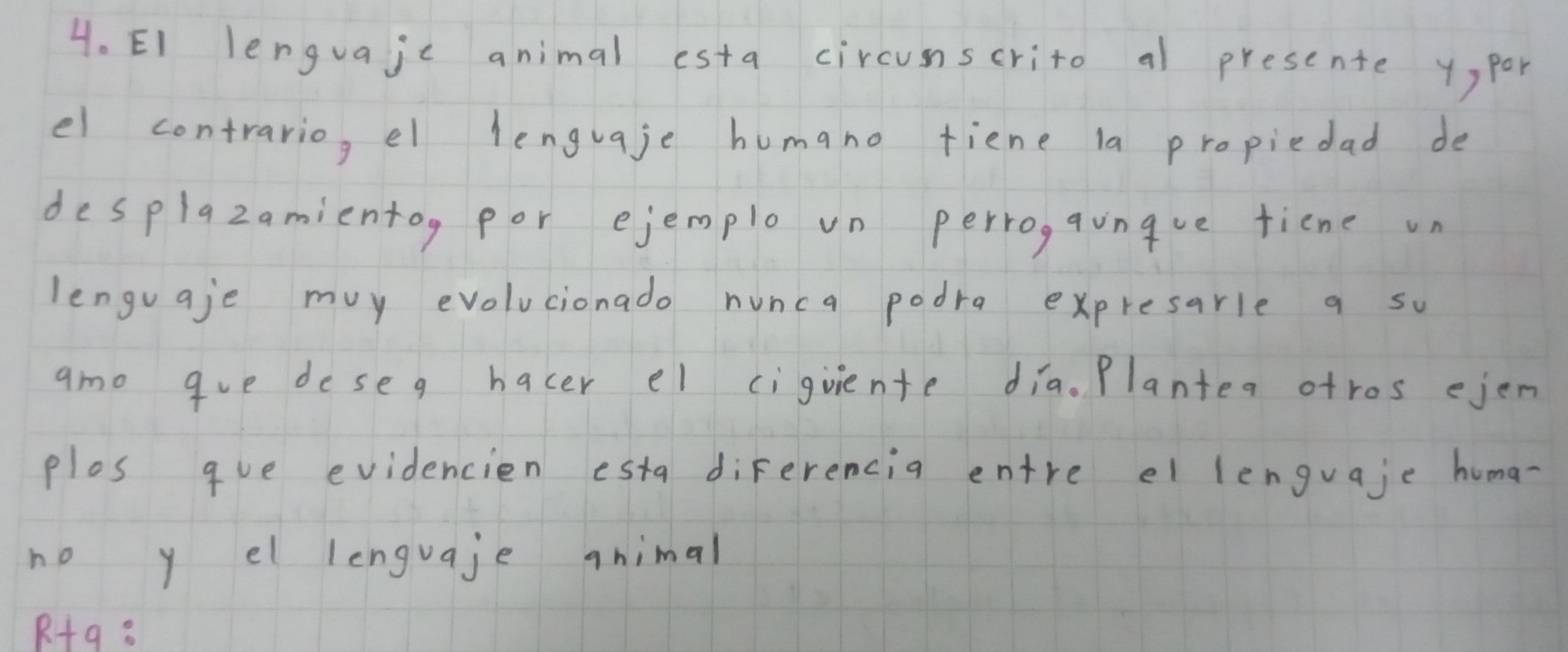 4. El lenguaje animal esta circunscrito al presente y, por
el contrario, el lenguaje humano tiene la propiedad de
desplazamiento, por ejemplo un perro, aunque tiene un
lenguaje muy evolucionado nunca podra expresarle a su
amo que desea hacer el ciguiente día. Plantea otros ejem
plos que evidencien esta diferencia entre el lenguaje huma-
no y el lenguaje animal
Rta: